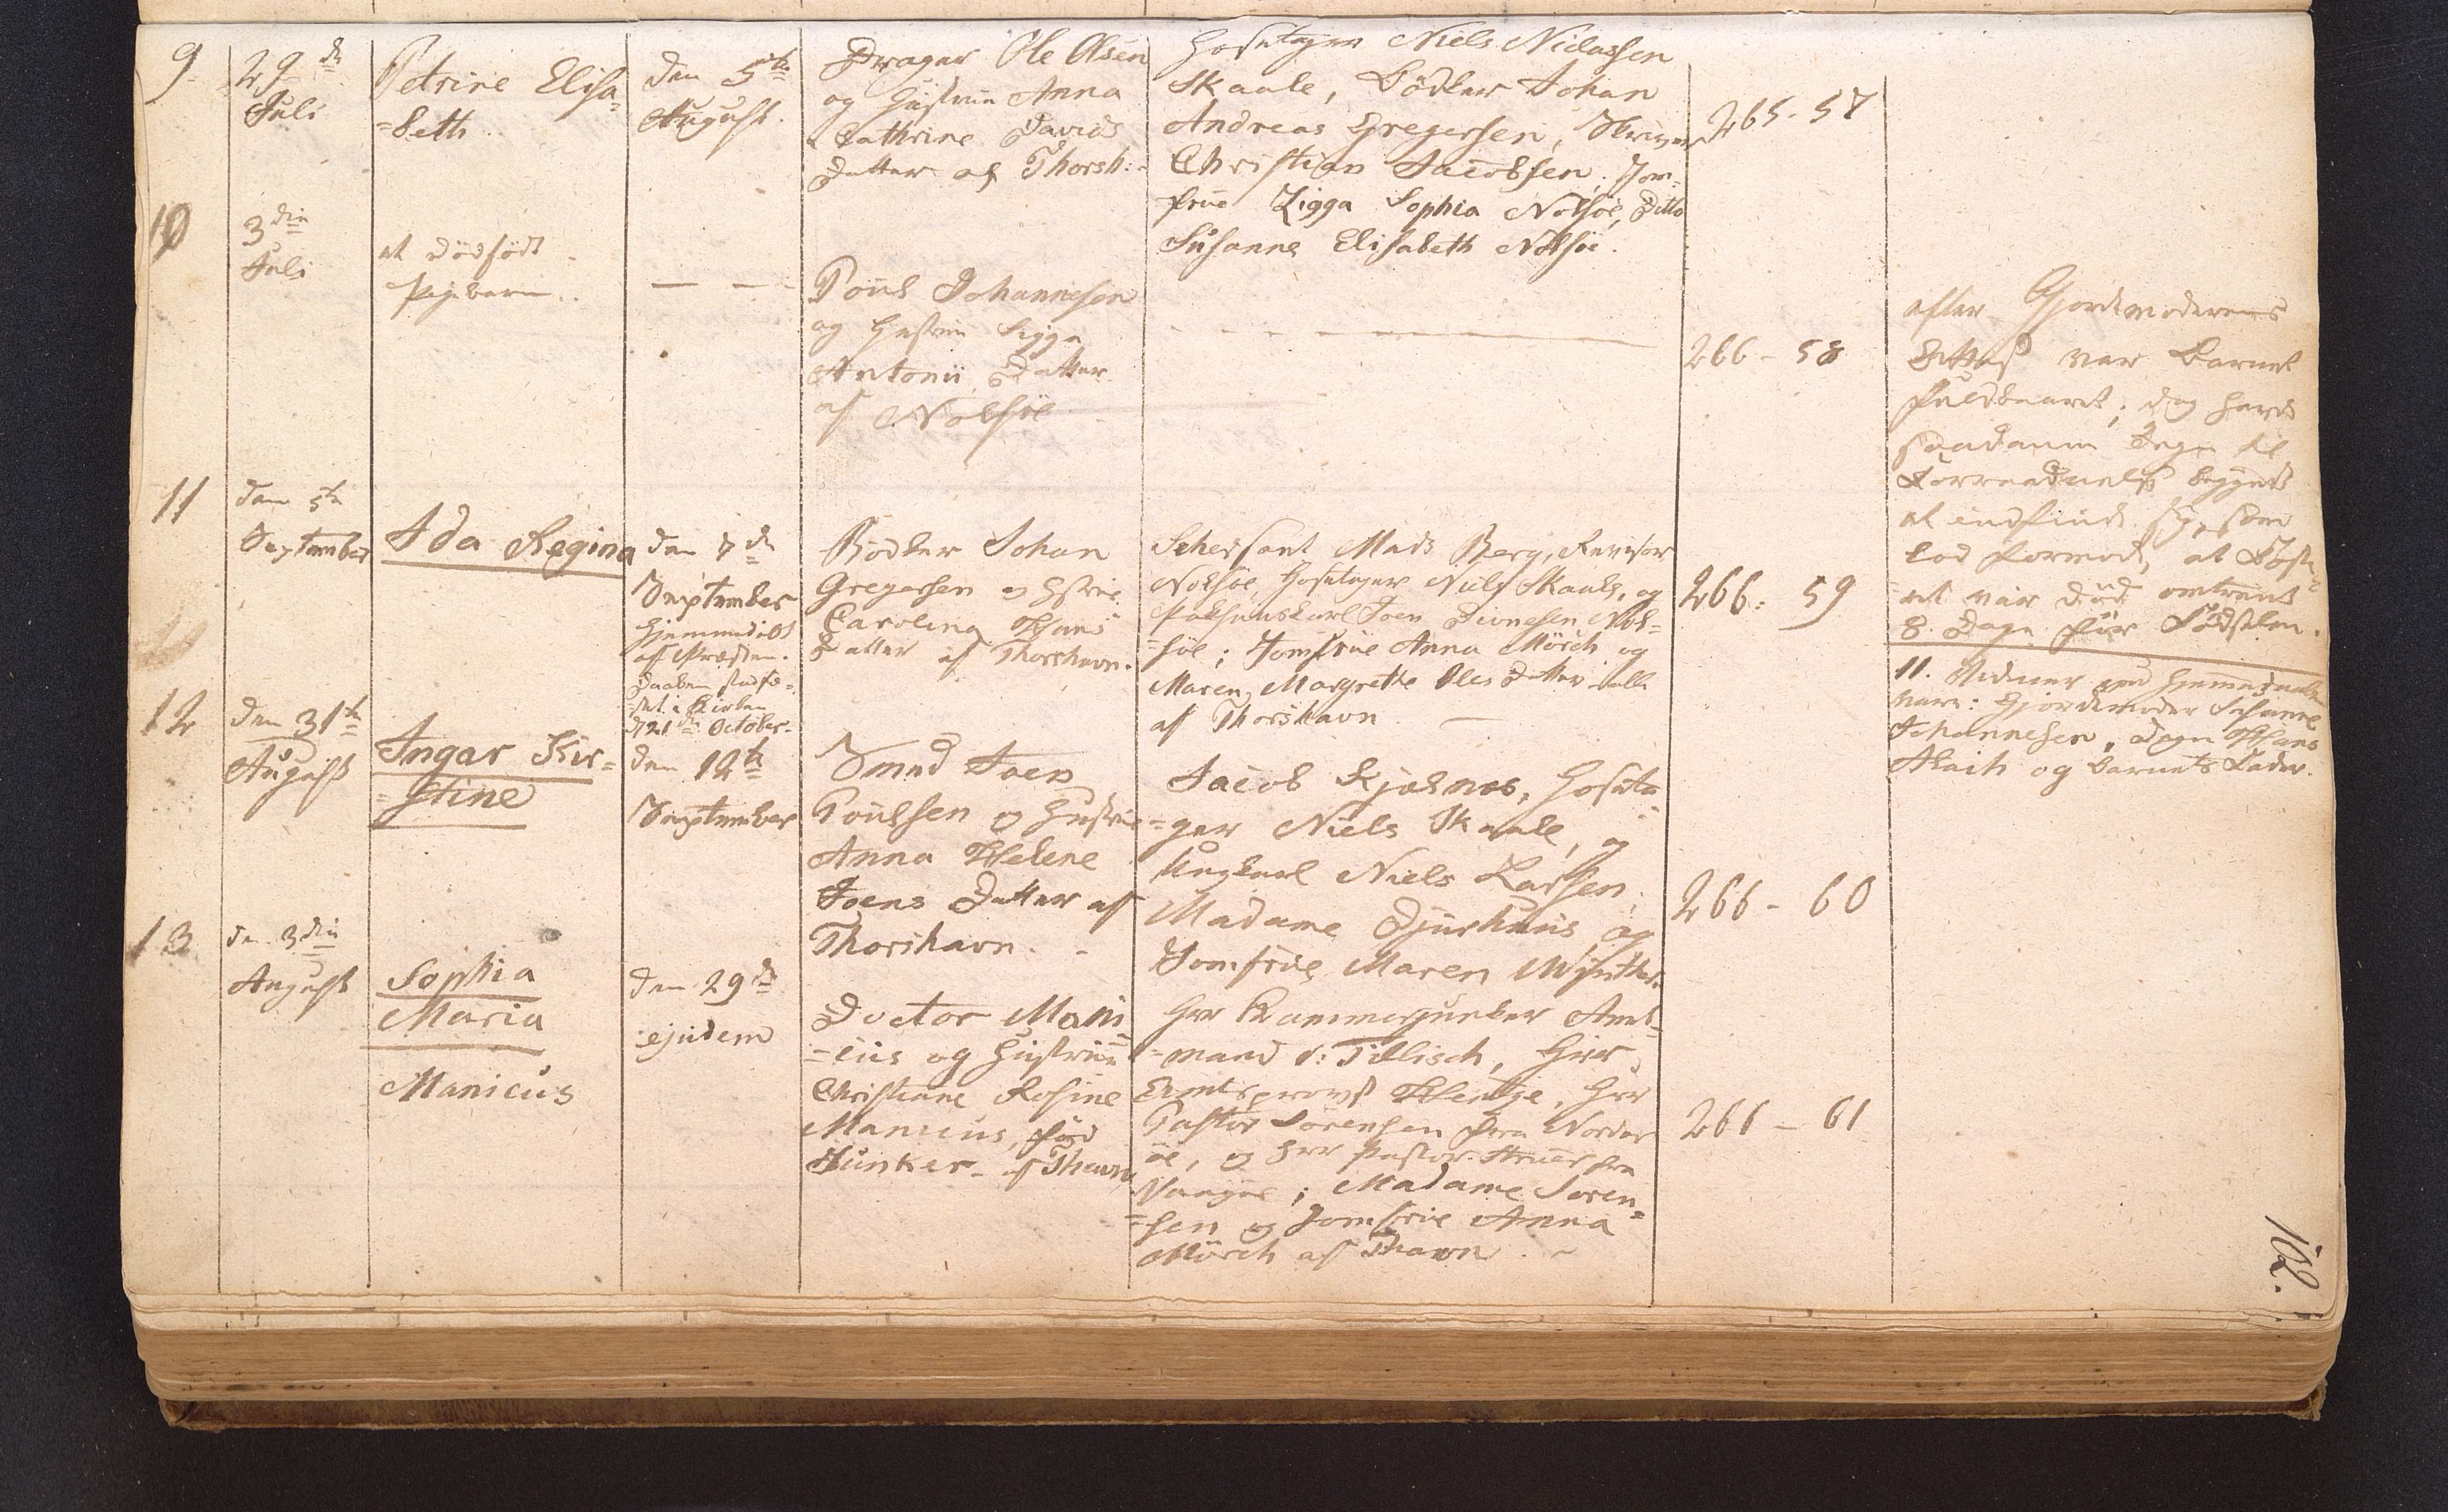 9.
29de
Juli
Petrine Elisa=
=beth.
den 5te
August.
Drager Ole Olsen
og Hustrue Anna
Cathrine Davids
Datter af Thorsh:
Hosetager Niels Niclassen
Skaale, Bödker Johan
Andreas Gregersen,
Christian Jacobsen, Jom=
frue Zigga Sophia Nolsöe, Ditto
Susanne Elisabeth Nolsöe.
265-57
10
3die
Juli
et dödfödt
Pigebarn.
— —
Poul Johannesen
og Hustrue Sigga
Antonii Datter
af Nolsöe
266-58
efter Gjordemoderens
var Barnet
fuldbaaret; dog havde
saadanne Tegn til
Forraadnelse begyndt
at indfinde sig, som
lod formode, at Foste=
=ret var död omtrent
8 Dage för Födselen.
11
den 5te
September
Ida Regina
den 7de
September
hjemmedöbt
af Præsten.
Daaben stadfæ=
stet i Kirken
d 21de October.
Bödker Johan
Gregersen og Hstrue
Carolina Hans
Datter af Thorshavn.
Scherfant Mads Berg, Revisor
Nolsöe, Hosetager Niels Skaale, og
Pakhuuskarl Joen Divnesen Nol=
=söe; Jomfrue Anna Mörch og
Maren Margrethe Oles Datter alle
af Thorshavn
266: 59
11. Vidner ved Hjemmedaaben
vare: Gjordemoder Susanne
Johannesen, Degn Hans
og Barnets Fader.
12
den 31te
August
Ingar Kir=
=stine
den 12te
September
Smed Joen
Poulsen og Hustrue
Anna Helene
Joens Datter af
Thorshavn.
Jacob Kjelnæs, Hoseta=
=ger Niels Skaale, og
Ungkarl Niels Larsen,
Madame Djurhuus og
Jomfrue Maren Winther.
266-60
13
den 3die
August
Sophia
Maria
Manicus
den 29de
ejusdem
Doctor Mani=
=cus og Hustrue
Christiane Rosine
Manicus, föd
Hünker af Thavn
Hrr Kammerjunker Amt=
=mand v: Tillisch, Herr
Amtsprovst Hentze, Hrr
Pastor Sörensen fra Norder
öe, og Hrr Pastor fra
Vaagöe; Madame Sören=
=sen og Jomfrue Anna
Mörch af Thavn.
266-61
102.